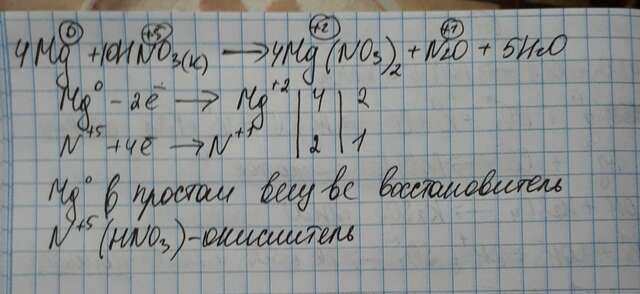 4Mg⁰ + 10HN⁺⁵O₃(к) → 4Mg⁺²(NO₃)₂ + N₂⁺¹O + 5H₂O
Mg⁰ - 2ē → Mg⁺² | 4 | 2
N⁺⁵ + 4ē → N⁺¹ | 2 | 1
Mg⁰ в простом вещ ве восстановитель
N⁺⁵ (HNO₃) - окислитель